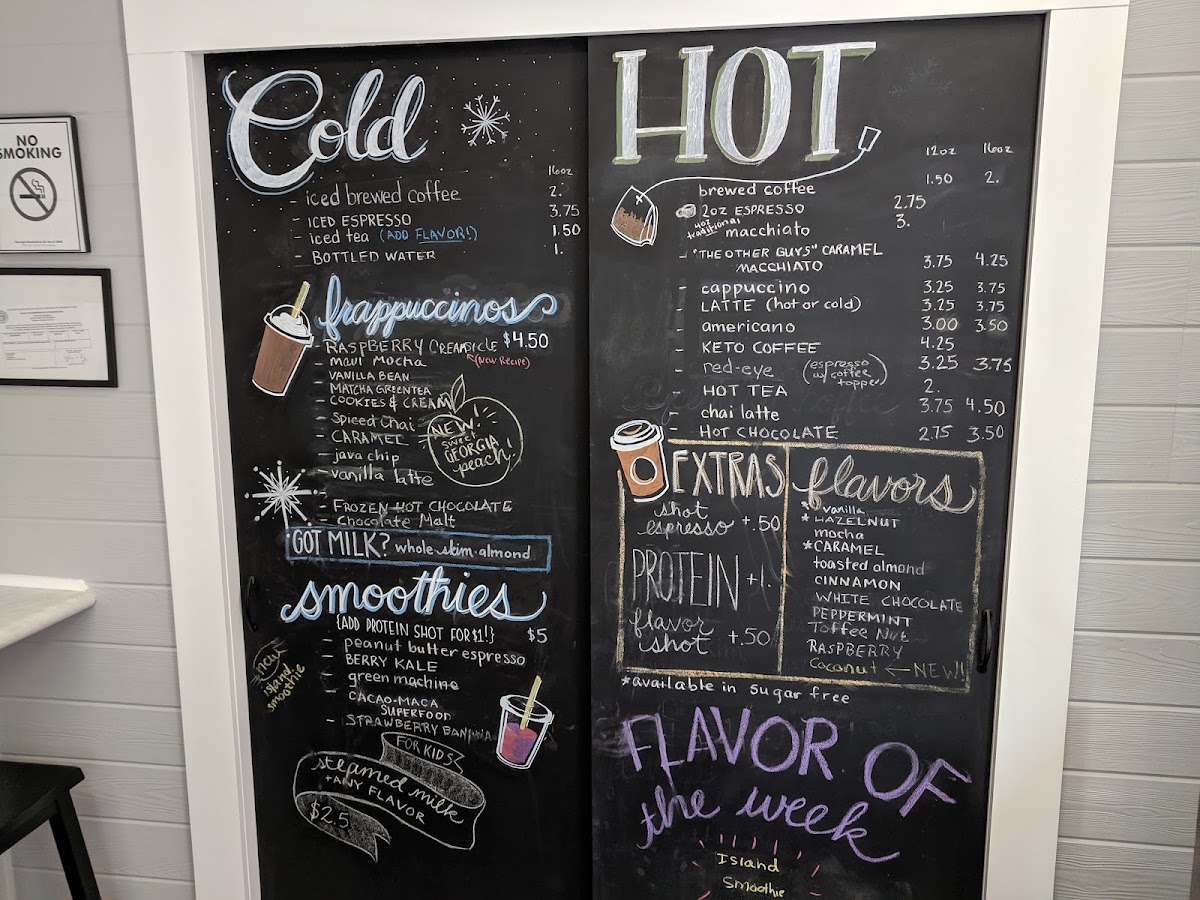 NO
SMOKING
Cold
16oz
- iced brewed coffee 2.
- ICED ESPRESSO 3.75
- iced tea (ADD FLAVOR!) 1.50
- BOTTLED WATER 1.
frappuccinos
$4.50
- RASPBERRY CREAMSICLE
(NEW RECIPE)
- maui mocha
- VANILLA BEAN
- MATCHA GREENTEA
- COOKIES & CREAM
- Spiced Chai
- CARAMEL
- java chip
- vanilla latte
NEW!
SWEET
GEORGIA
peach!
- FROZEN HOT CHOCOLATE
- Chocolate Malt
GOT MILK? whole·skim·almond
smoothies
{ADD PROTEIN SHOT FOR $1!} $5
- peanut butter espresso
- BERRY KALE
- green machine
- CACAO-MACA
SUPERFOOD
- STRAWBERRY BANANA
new
island
smoothie
FOR KIDS
steamed milk
+ANY FLAVOR
$2.5
HOT
12oz 16oz
brewed coffee 1.50 2.
2oz ESPRESSO 2.75
4oz
traditional
macchiato 3.
- "THE OTHER GUYS" CARAMEL
MACCHIATO 3.75 4.25
- cappuccino 3.25 3.75
- LATTE (hot or cold) 3.25 3.75
- americano 3.00 3.50
- KETO COFFEE 4.25
- red-eye (espresso
w/ coffee
topper) 3.25 3.75
- HOT TEA 2.
- chai latte 3.75 4.50
- HOT CHOCOLATE 2.75 3.50
EXTRAS
shot
espresso +.50
PROTEIN +1.
flavor
shot +.50
flavors
* vanilla
* HAZELNUT
mocha
* CARAMEL
toasted almond
CINNAMON
WHITE CHOCOLATE
PEPPERMINT
Toffee Nut
RASPBERRY
Coconut ← NEW!
*available in sugar free
FLAVOR OF
the week
Island
Smoothie